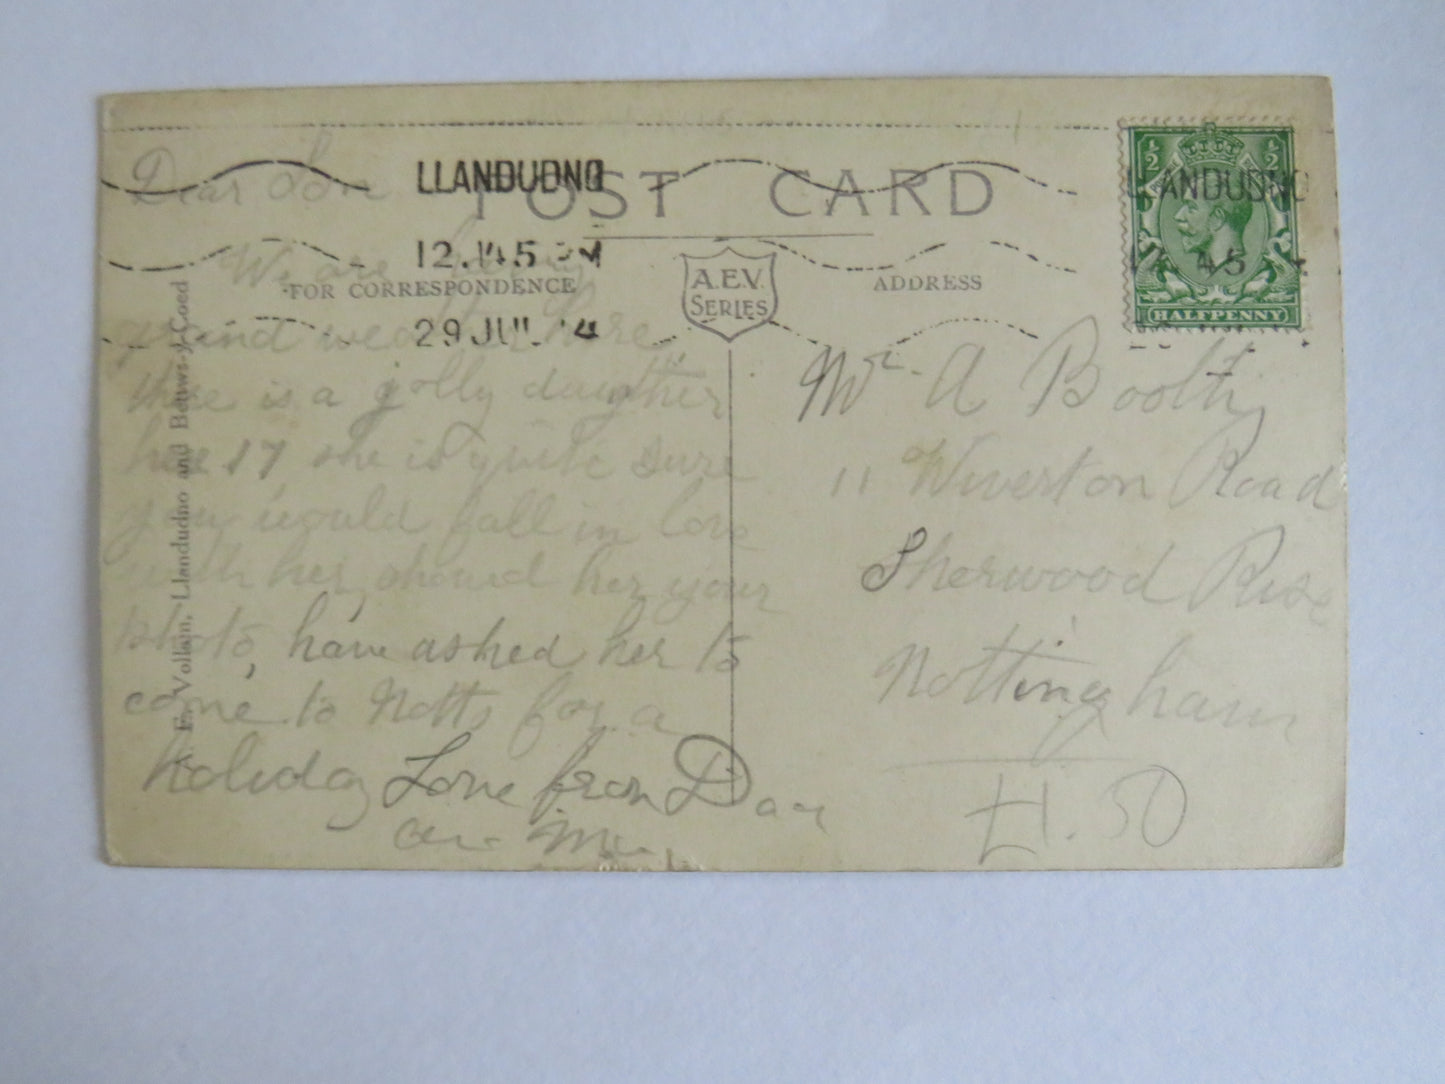 POST CARD
LLANDUDNO
12.145 PM
29 JUL 14
FOR CORRESPONDENCE
A.E.V.
SERIES
ADDRESS
½ ½
LLANDUDNO
HALFPENNY
Dear
We are having
grand weather here
there is a jolly daughter
here 17 she is quite sure
you would fall in love
with her, showed her your
photo, have asked her to
come to Notts for a
holiday Love from Dad
Mr. A Booth
11 Wiverton Road
Sherwood Rise
Nottingham
£1.50
Vollam, Llandudno and Bettws-y-Coed